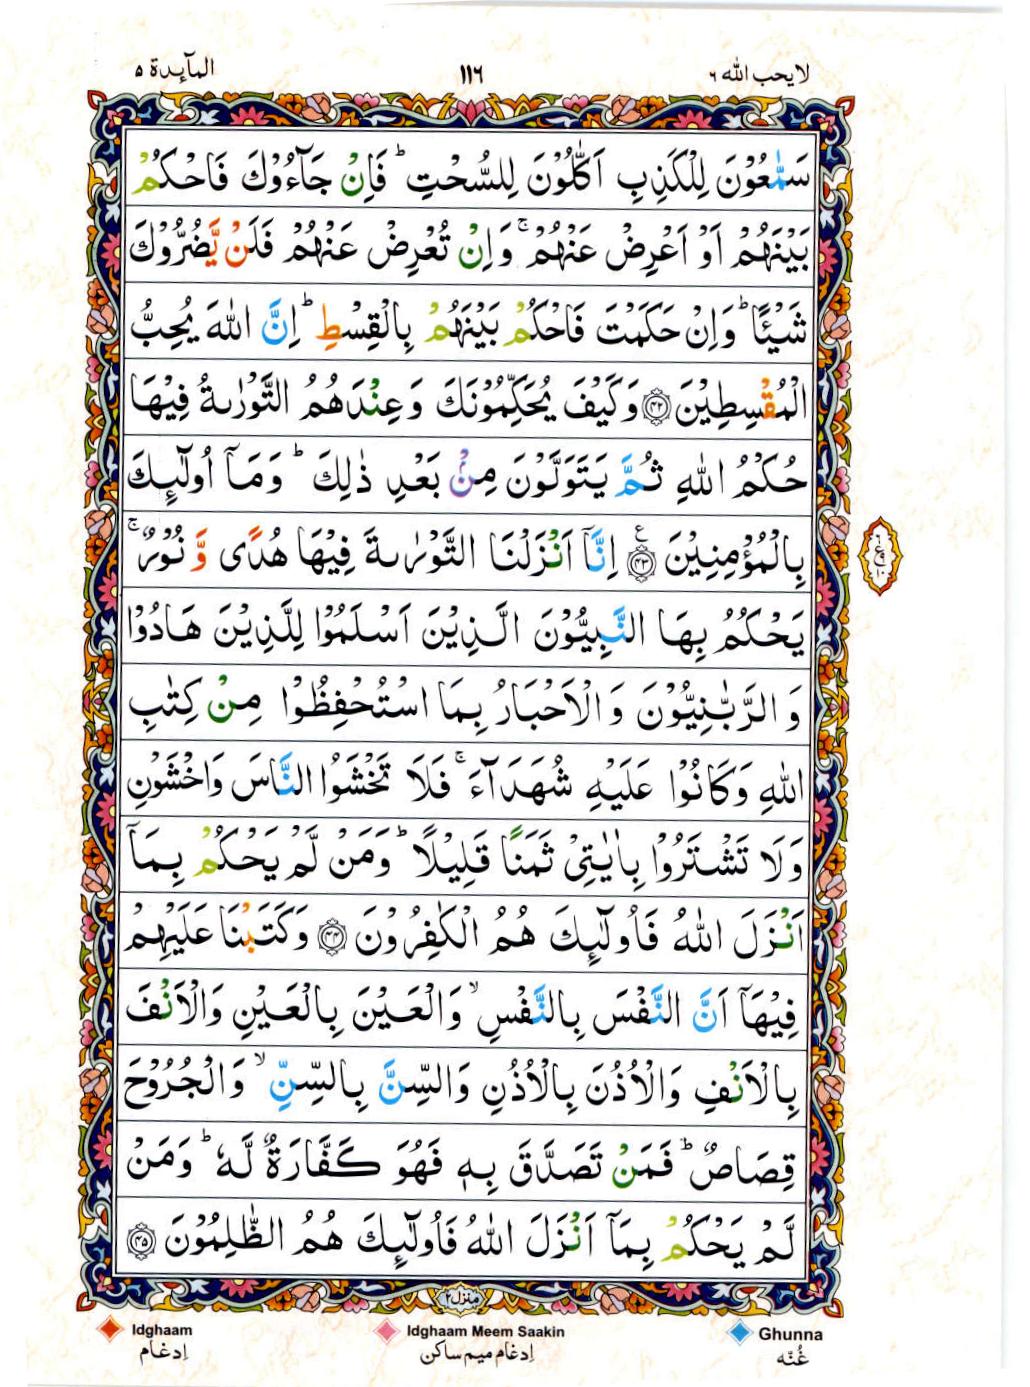 لا يحب الله ٦
١١٦
المآىِٕدة ٥
سَمّٰعُوْنَ لِلْكَذِبِ اَكّٰلُوْنَ لِلسُّحْتِ ؕ فَاِنْ جَآءُوْكَ فَاحْكُمْ
بَيْنَهُمْ اَوْ اَعْرِضْ عَنْهُمْ ۚ وَاِنْ تُعْرِضْ عَنْهُمْ فَلَنْ يَّضُرُّوْكَ
شَيْـًٔا ؕ وَاِنْ حَكَمْتَ فَاحْكُمْ بَيْنَهُمْ بِالْقِسْطِ ؕ اِنَّ اللّٰهَ يُحِبُّ
الْمُقْسِطِيْنَ ﴿۴۲﴾ وَكَيْفَ يُحَكِّمُوْنَكَ وَعِنْدَهُمُ التَّوْرٰىةُ فِيْهَا
حُكْمُ اللّٰهِ ثُمَّ يَتَوَلَّوْنَ مِنْۢ بَعْدِ ذٰلِكَ ؕ وَمَاۤ اُولٰٓىِٕكَ
بِالْمُؤْمِنِيْنَ ﴿۴۳﴾ ع اِنَّاۤ اَنْزَلْنَا التَّوْرٰىةَ فِيْهَا هُدًى وَّ نُوْرٌ ۚ
يَحْكُمُ بِهَا النَّبِيُّوْنَ الَّذِيْنَ اَسْلَمُوْا لِلَّذِيْنَ هَادُوْا
وَ الرَّبّٰنِيُّوْنَ وَ الْاَحْبَارُ بِمَا اسْتُحْفِظُوْا مِنْ كِتٰبِ
اللّٰهِ وَكَانُوْا عَلَيْهِ شُهَدَآءَ ۚ فَلَا تَخْشَوُا النَّاسَ وَاخْشَوْنِ
وَلَا تَشْتَرُوْا بِاٰيٰتِيْ ثَمَنًا قَلِيْلًا ؕ وَمَنْ لَّمْ يَحْكُمْ بِمَاۤ
اَنْزَلَ اللّٰهُ فَاُولٰٓىِٕكَ هُمُ الْكٰفِرُوْنَ ﴿۴۴﴾ وَكَتَبْنَا عَلَيْهِمْ
فِيْهَاۤ اَنَّ النَّفْسَ بِالنَّفْسِ ۙ وَالْعَيْنَ بِالْعَيْنِ وَالْاَنْفَ
بِالْاَنْفِ وَالْاُذُنَ بِالْاُذُنِ وَالسِّنَّ بِالسِّنِّ ۙ وَالْجُرُوْحَ
قِصَاصٌ ؕ فَمَنْ تَصَدَّقَ بِهٖ فَهُوَ كَفَّارَةٌ لَّهٗ ؕ وَمَنْ
لَّمْ يَحْكُمْ بِمَاۤ اَنْزَلَ اللّٰهُ فَاُولٰٓىِٕكَ هُمُ الظّٰلِمُوْنَ ﴿۴۵﴾
منزل ۲
Idghaam
اِدغام
Idghaam Meem Saakin
اِدغام میم ساکن
Ghunna
غُنّه